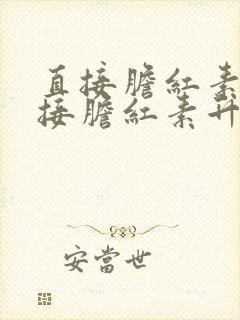 直接膽紅素
接膽紅素升
安當世